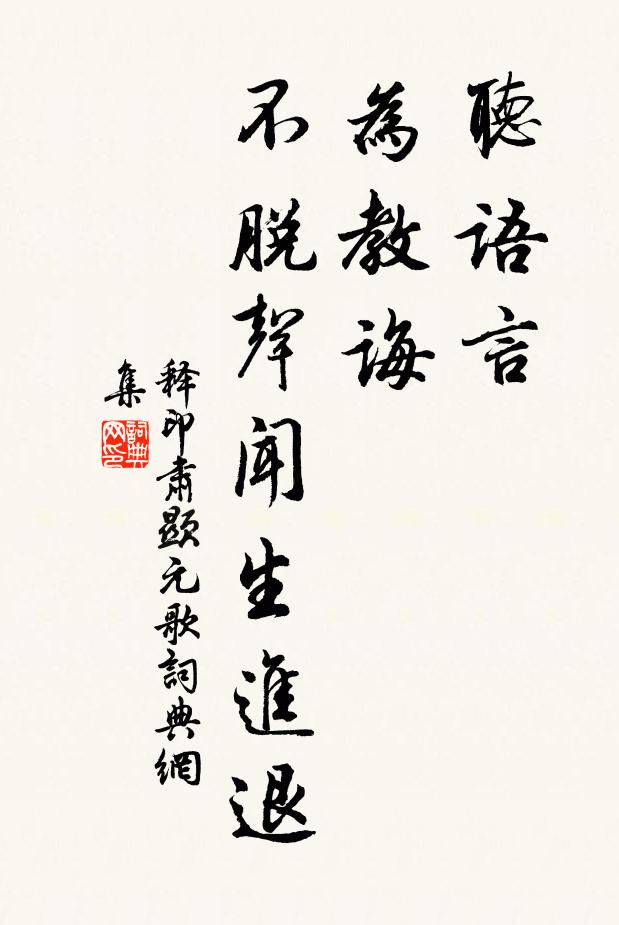 聽語言
為教誨
不脫聲聞生進退
释印肅顯元歌詞典網
集
詞典网印